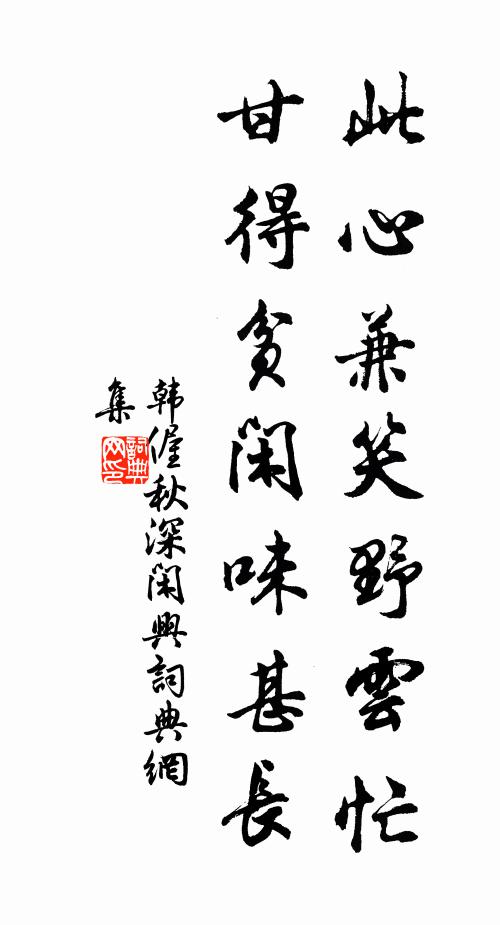 此心兼笑野雲忙
甘得貧閑味甚長
韩偓秋深閑興詞典網
集
詞典
网印